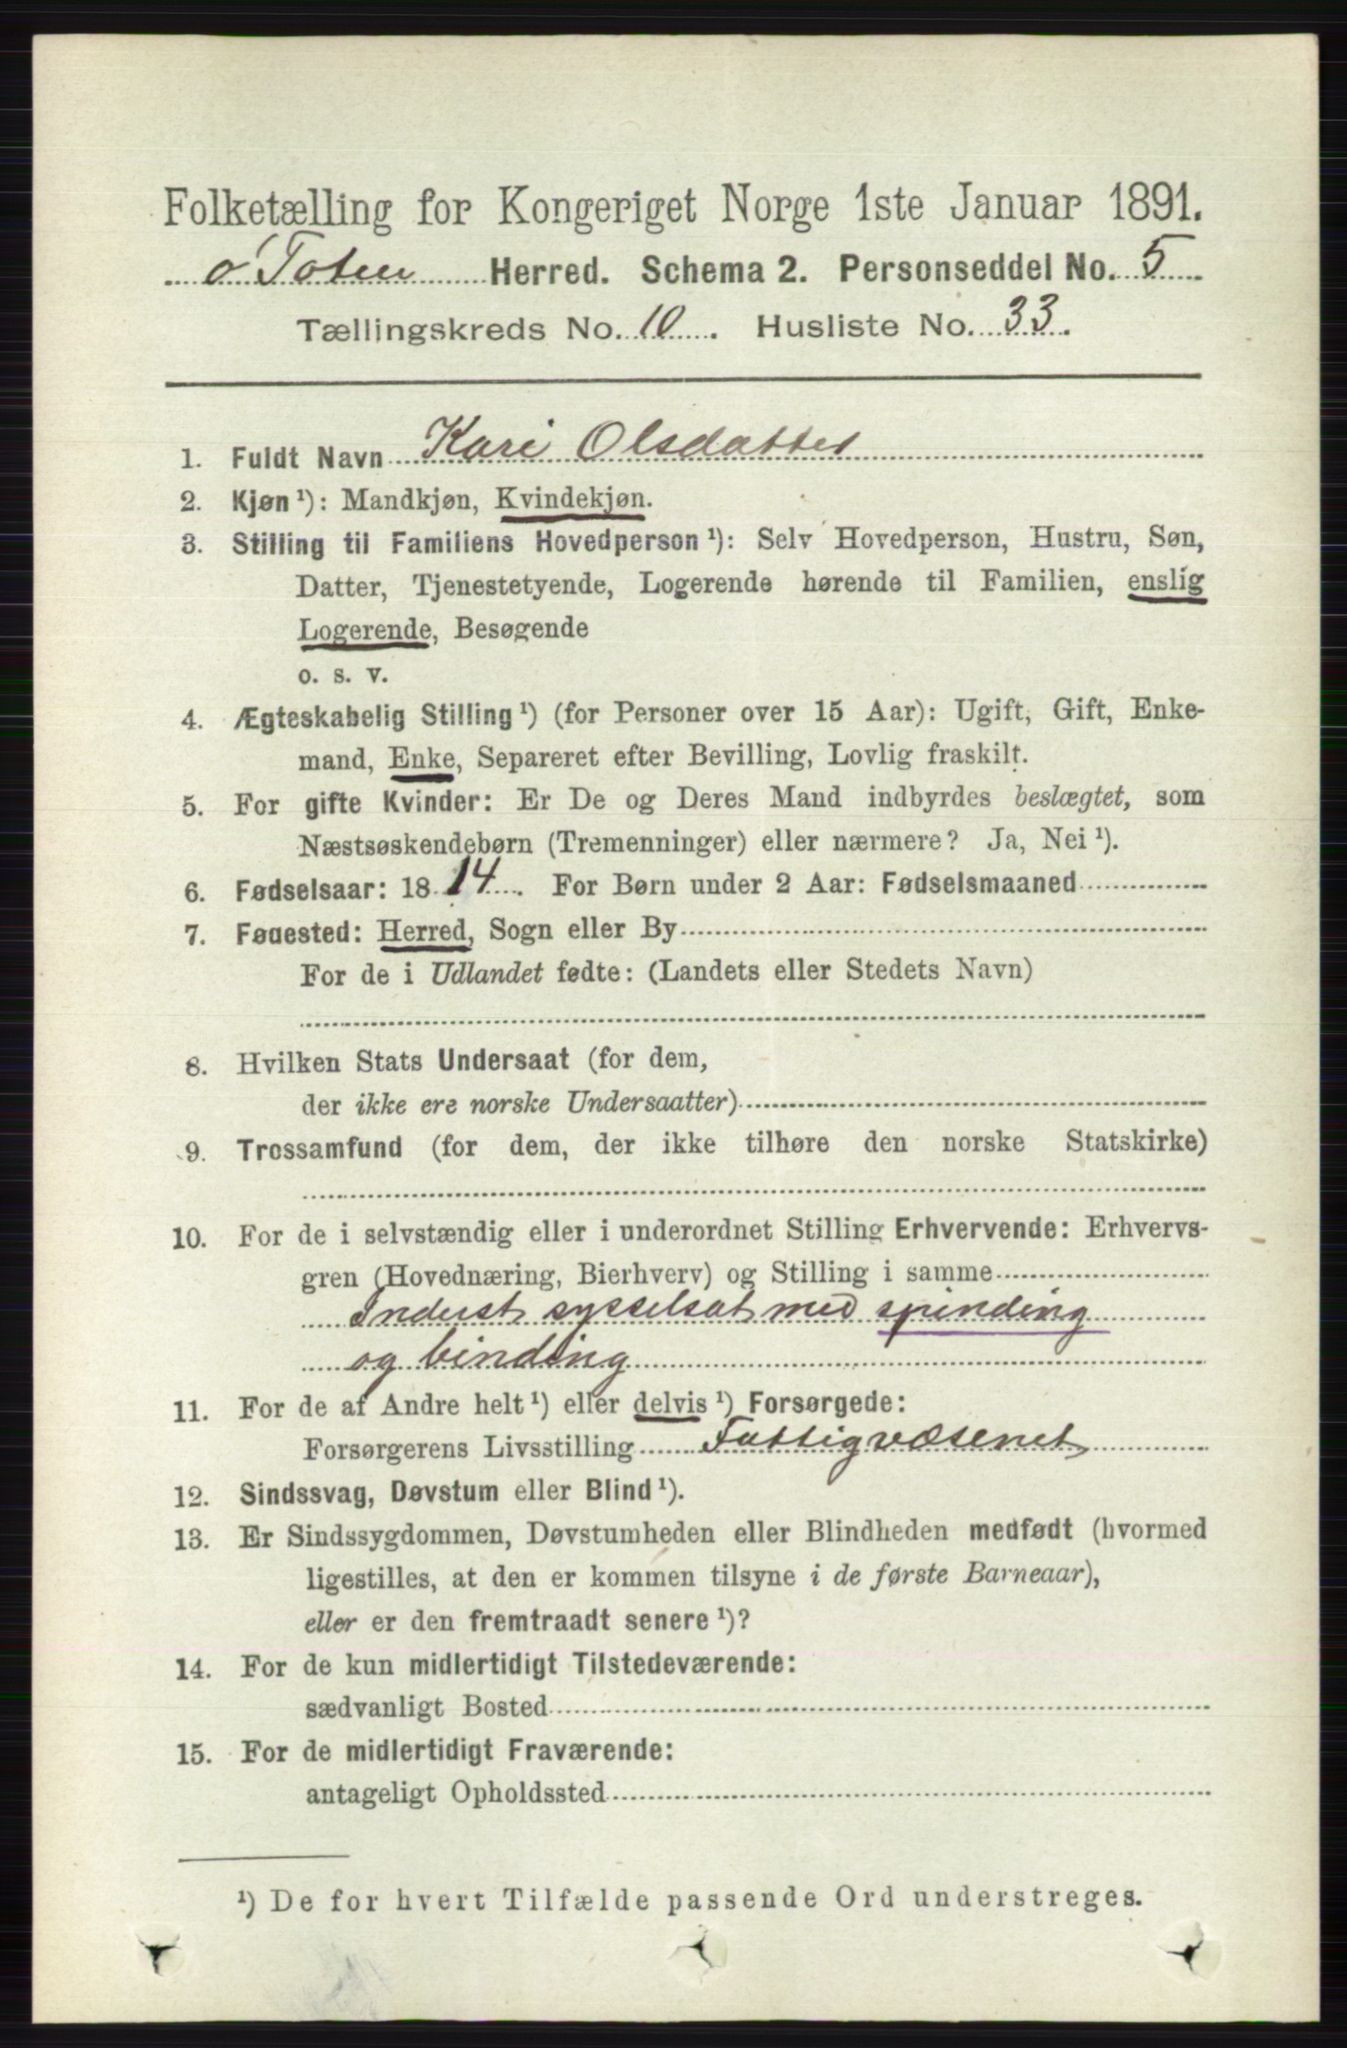 Folketælling for Kongeriget Norge 1ste Januar 1891.
Ø Toten Herred. Schema 2. Personseddel No. 5
Tællingskreds No. 10. Husliste No. 33.
1. Fuldt Navn Kari Olsdatter
2. Kjøn ¹): Mandkjøn, Kvindekjøn.
3. Stilling til Familiens Hovedperson ¹): Selv Hovedperson, Hustru, Søn,
Datter, Tjenestetyende, Logerende hørende til Familien, enslig
Logerende, Besøgende
o. s. v.
4. Ægteskabelig Stilling ¹) (for Personer over 15 Aar): Ugift, Gift, Enke-
mand, Enke, Separeret efter Bevilling, Lovlig fraskilt.
5. For gifte Kvinder: Er De og Deres Mand indbyrdes beslægtet, som
Næstsøskendebørn (Tremenninger) eller nærmere? Ja, Nei ¹).
6. Fødselsaar: 1814. For Børn under 2 Aar: Fødselsmaaned
7. Fødested: Herred, Sogn eller By
For de i Udlandet fødte: (Landets eller Stedets Navn)
8. Hvilken Stats Undersaat (for dem,
der ikke ere norske Undersaatter)
9. Trossamfund (for dem, der ikke tilhøre den norske Statskirke)
10. For de i selvstændig eller i underordnet Stilling Erhvervende: Erhvervs-
gren (Hovednæring, Bierhverv) og Stilling i samme
Inderst sysselsat med spinding
og binding
11. For de af Andre helt ¹) eller delvis ¹) Forsørgede:
Forsørgerens Livsstilling Fattigvæsenet
12. Sindssvag, Døvstum eller Blind ¹).
13. Er Sindssygdommen, Døvstumheden eller Blindheden medfødt (hvormed
ligestilles, at den er kommen tilsyne i de første Barneaar),
eller er den fremtraadt senere ¹)?
14. For de kun midlertidigt Tilstedeværende:
sædvanligt Bosted
15. For de midlertidigt Fraværende:
antageligt Opholdssted
¹) De for hvert Tilfælde passende Ord understreges.